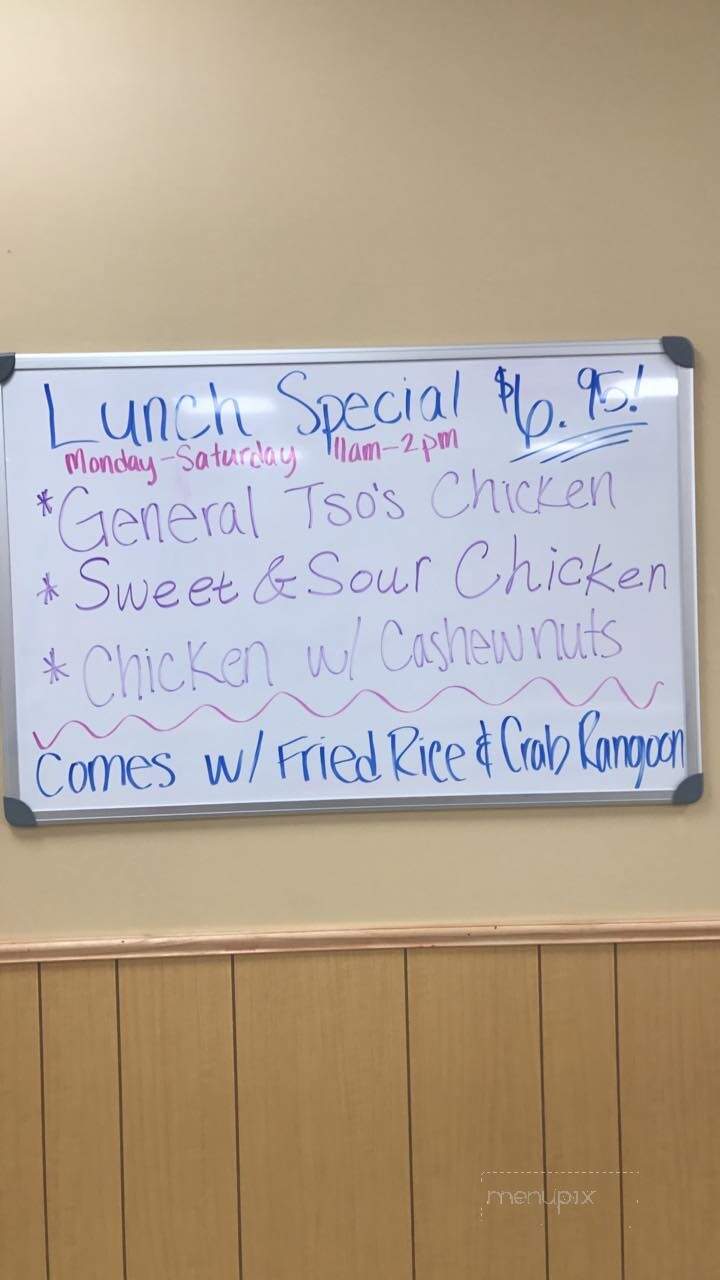 Lunch Special $6.95!
Monday-Saturday 11am-2pm
* General Tso's Chicken
* Sweet & Sour Chicken
* Chicken w/ Cashewnuts
Comes w/ Fried Rice & Crab Rangoon
menupix